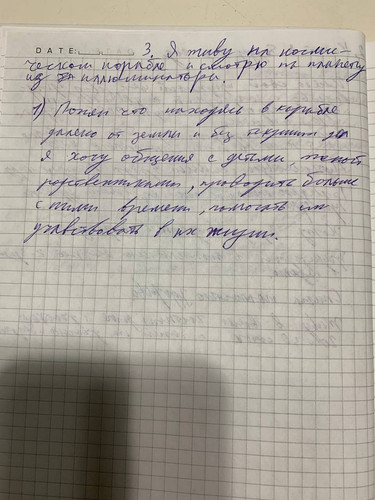 DATE: 3. Я живу на косми-
ческом корабле и смотрю на планету
из иллюминатора.
1) Понял что находясь в корабле
далеко от земли и без текущих дел
я хочу общения с детьми,
родственниками, проводить больше
с ними времени, помогать им
учавствовать в их жизни.